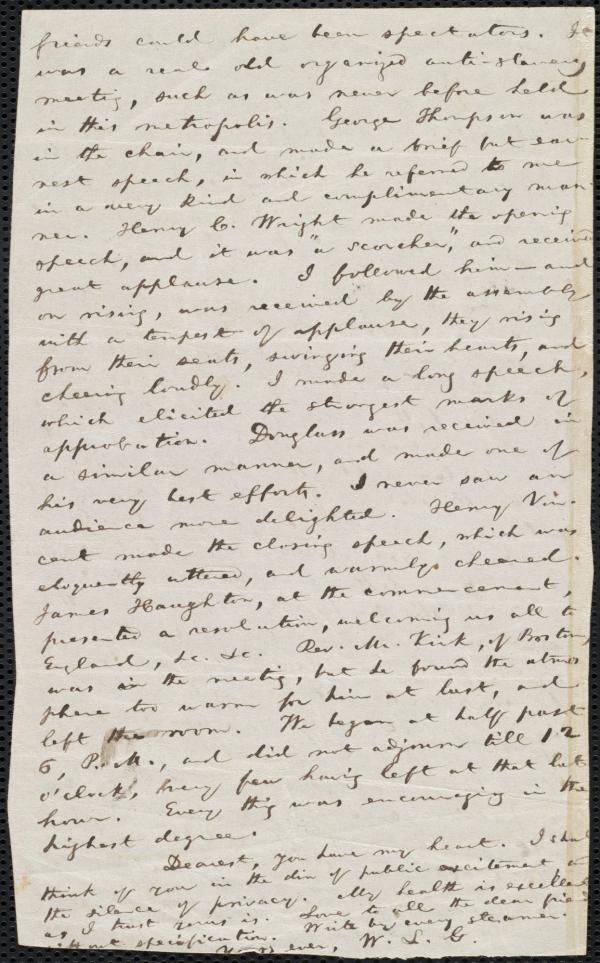 friends could have been spectators. It
was a real old organized anti-slavery
meeting, such as was never before held
in this metropolis. George Thompson was
in the chair, and made a brief but ear-
nest speech, in which he referred to me
in a very kind and complimentary man-
ner. Henry C. Wright made the opening
speech, and it was "a scorcher," and received
great applause. I followed him—and
on rising, was received by the assembly
with a tempest of applause, they rising
from their seats, swinging their hearts, and
cheering loudly. I made a long speech,
which elicited the strongest marks of
approbation. Douglass was received in
a similar manner, and made one of
his very best efforts. I never saw an
audience more delighted. Henry Vin-
cent made the closing speech, which was
eloquently uttered, and warmly cheered.
James Haughton, at the commencement,
presented a resolution, welcoming us all to
England, &c. &c. Rev. Mr. Kirk, of Boston,
was in the meeting, but he found the atmos
phere too warm for him at last, and
left the room. We began at half past
6, P. M., and did not adjourn till 12
o'clock, very few having left at that late
hour. Every thing was encouraging in the
highest degree.
Dearest, you have my heart. I shall
think of you in the din of public excitement or
the silence of privacy. My health is excellent
as I trust yours is. Love to all the dear friends
without specification. Write by every steamer.
Yours ever, W. L. G.